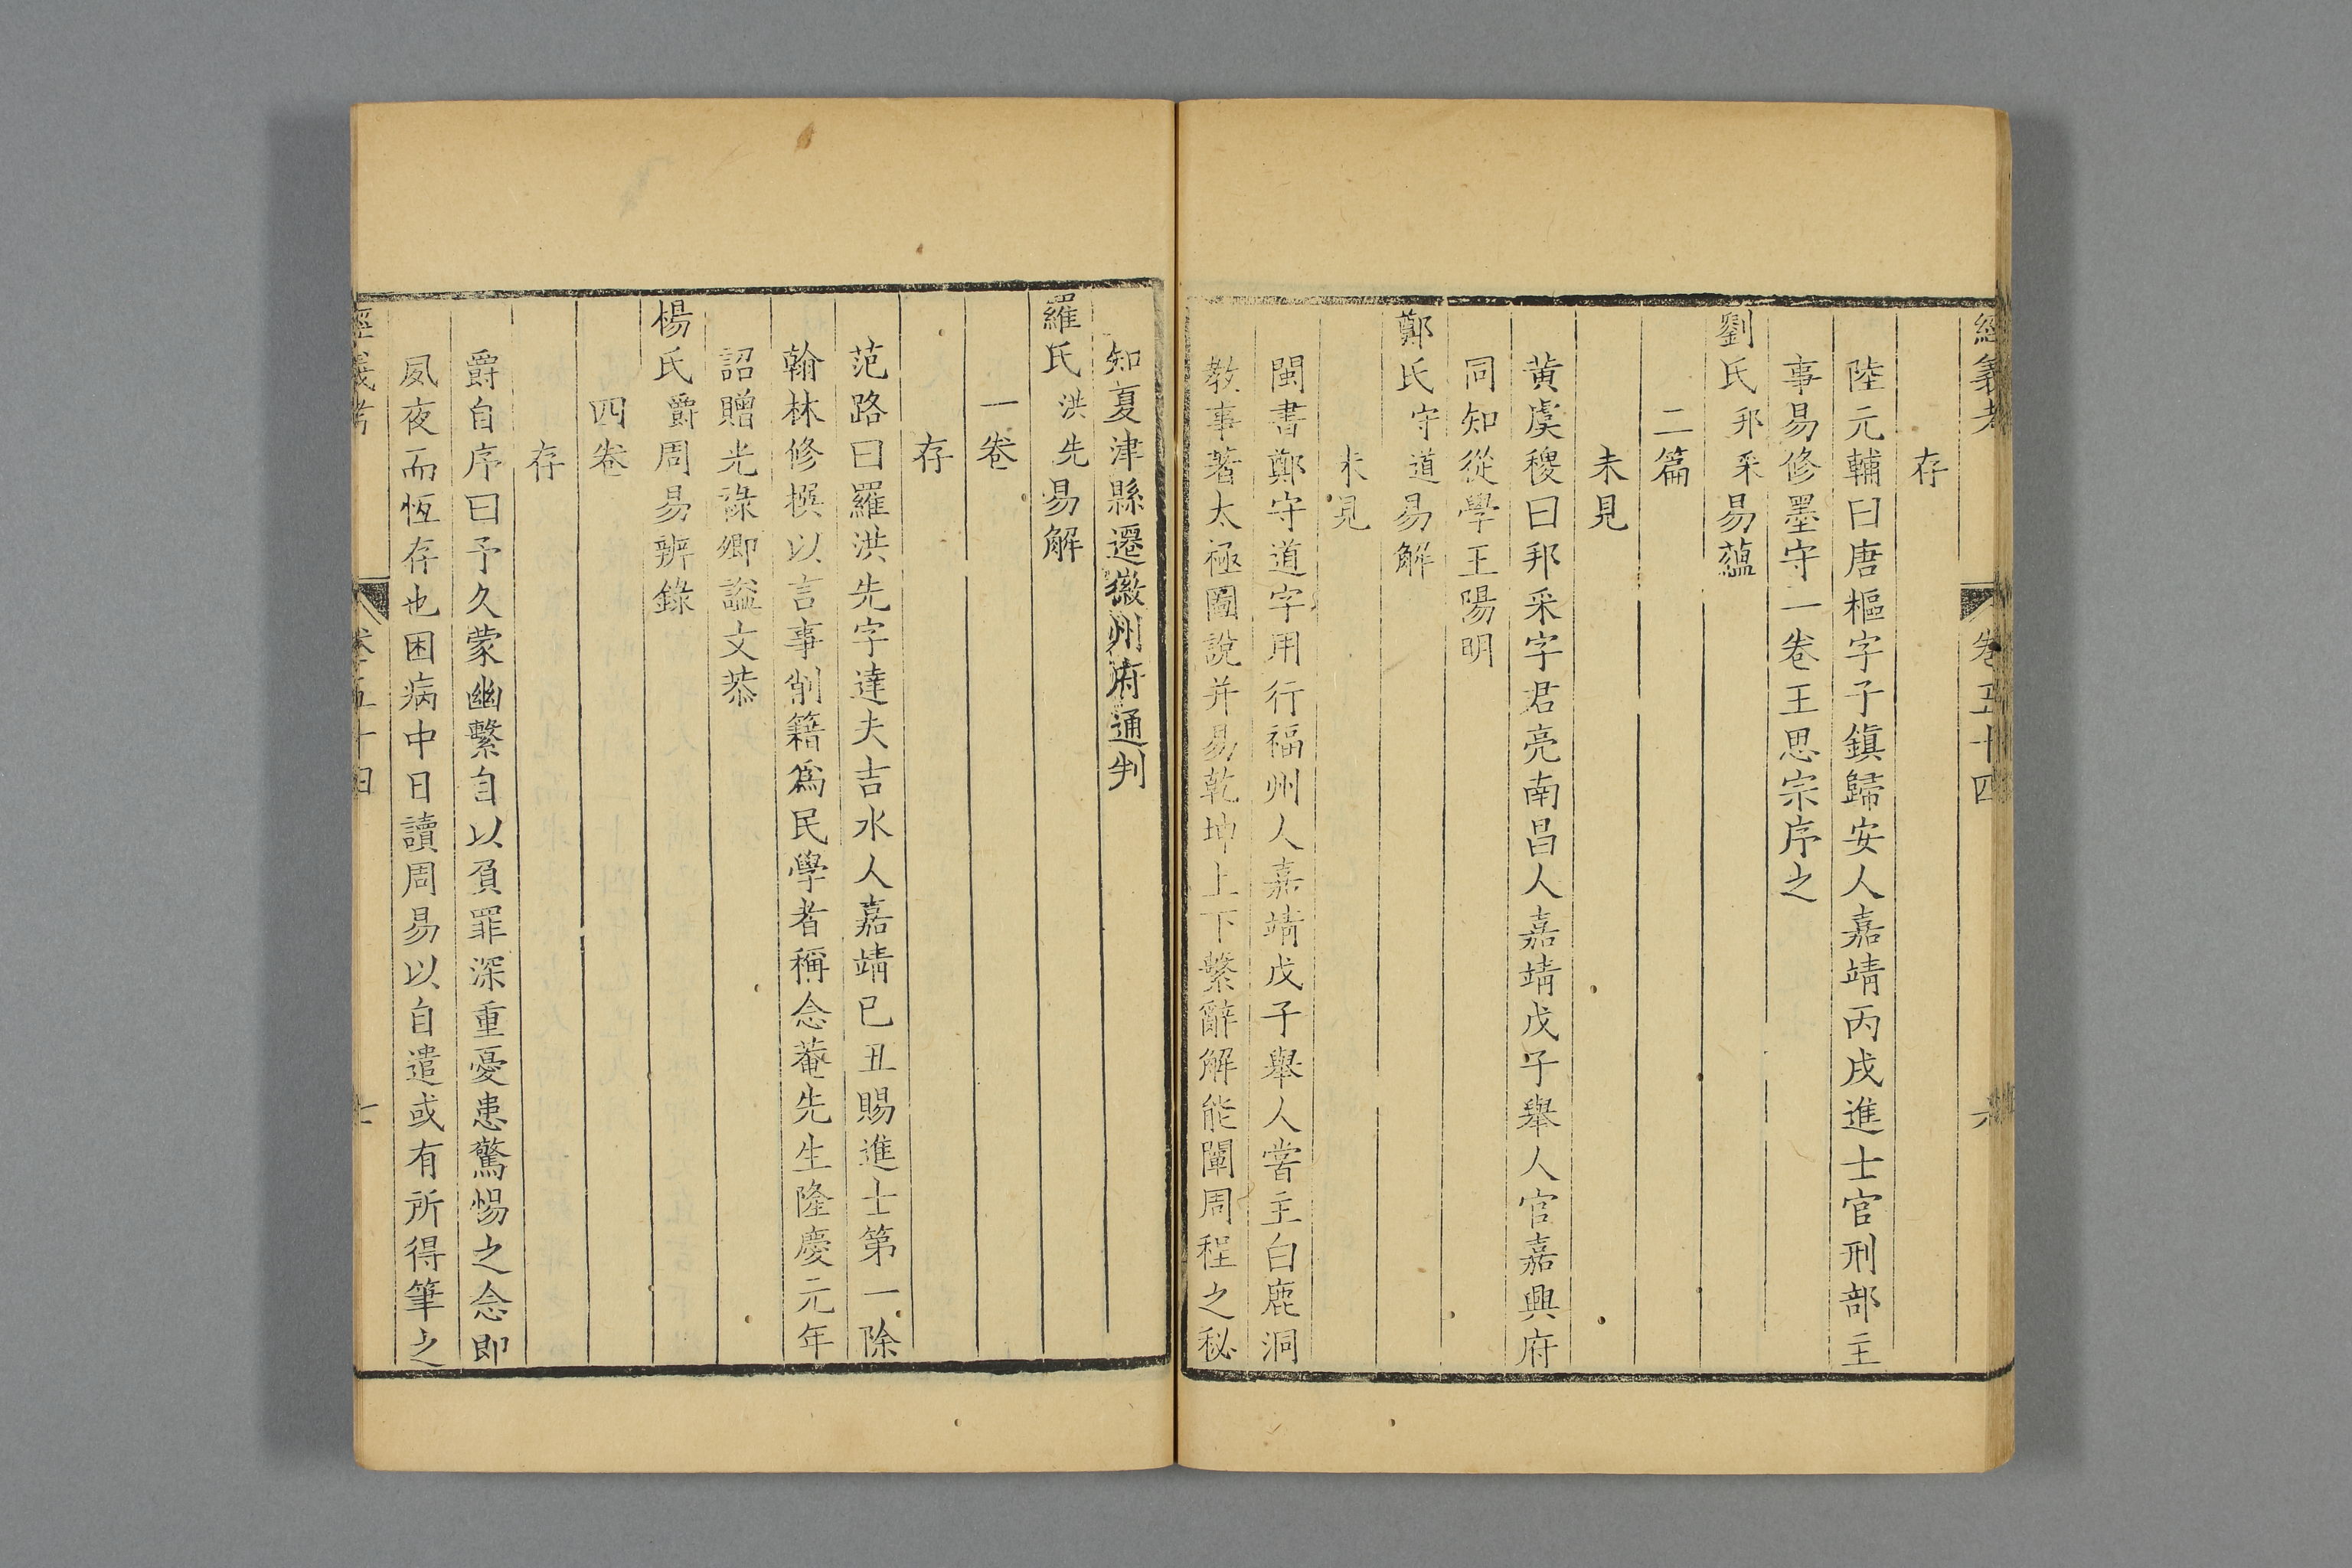 經義考 卷五十四 六
存
陸元輔曰唐樞字子鎮歸安人嘉靖丙戌進士官刑部主
事易修墨守一卷王思宗序之
劉氏邦采易蘊
二篇
未見
黃虞稷曰邦采字君亮南昌人嘉靖戊子舉人官嘉興府
同知從學王陽明
鄭氏守道易解
未見
閩書鄭守道字用行福州人嘉靖戊子舉人嘗主白鹿洞
教事著太極圖說并易乾坤上下繫辭解能闡周程之秘
知夏津縣遷徽州府通判
羅氏洪先易解
一卷
存
范路曰羅洪先字達夫吉水人嘉靖已丑賜進士第一除
翰林修撰以言事削籍為民學者稱念菴先生隆慶元年
詔贈光祿卿謚文恭
楊氏爵周易辨錄
四卷
存
爵自序曰予久蒙幽繫自以負罪深重憂患驚惕之念即
夙夜而恆存也困病中日讀周易以自遣或有所得筆之
經義考 卷五十四 七